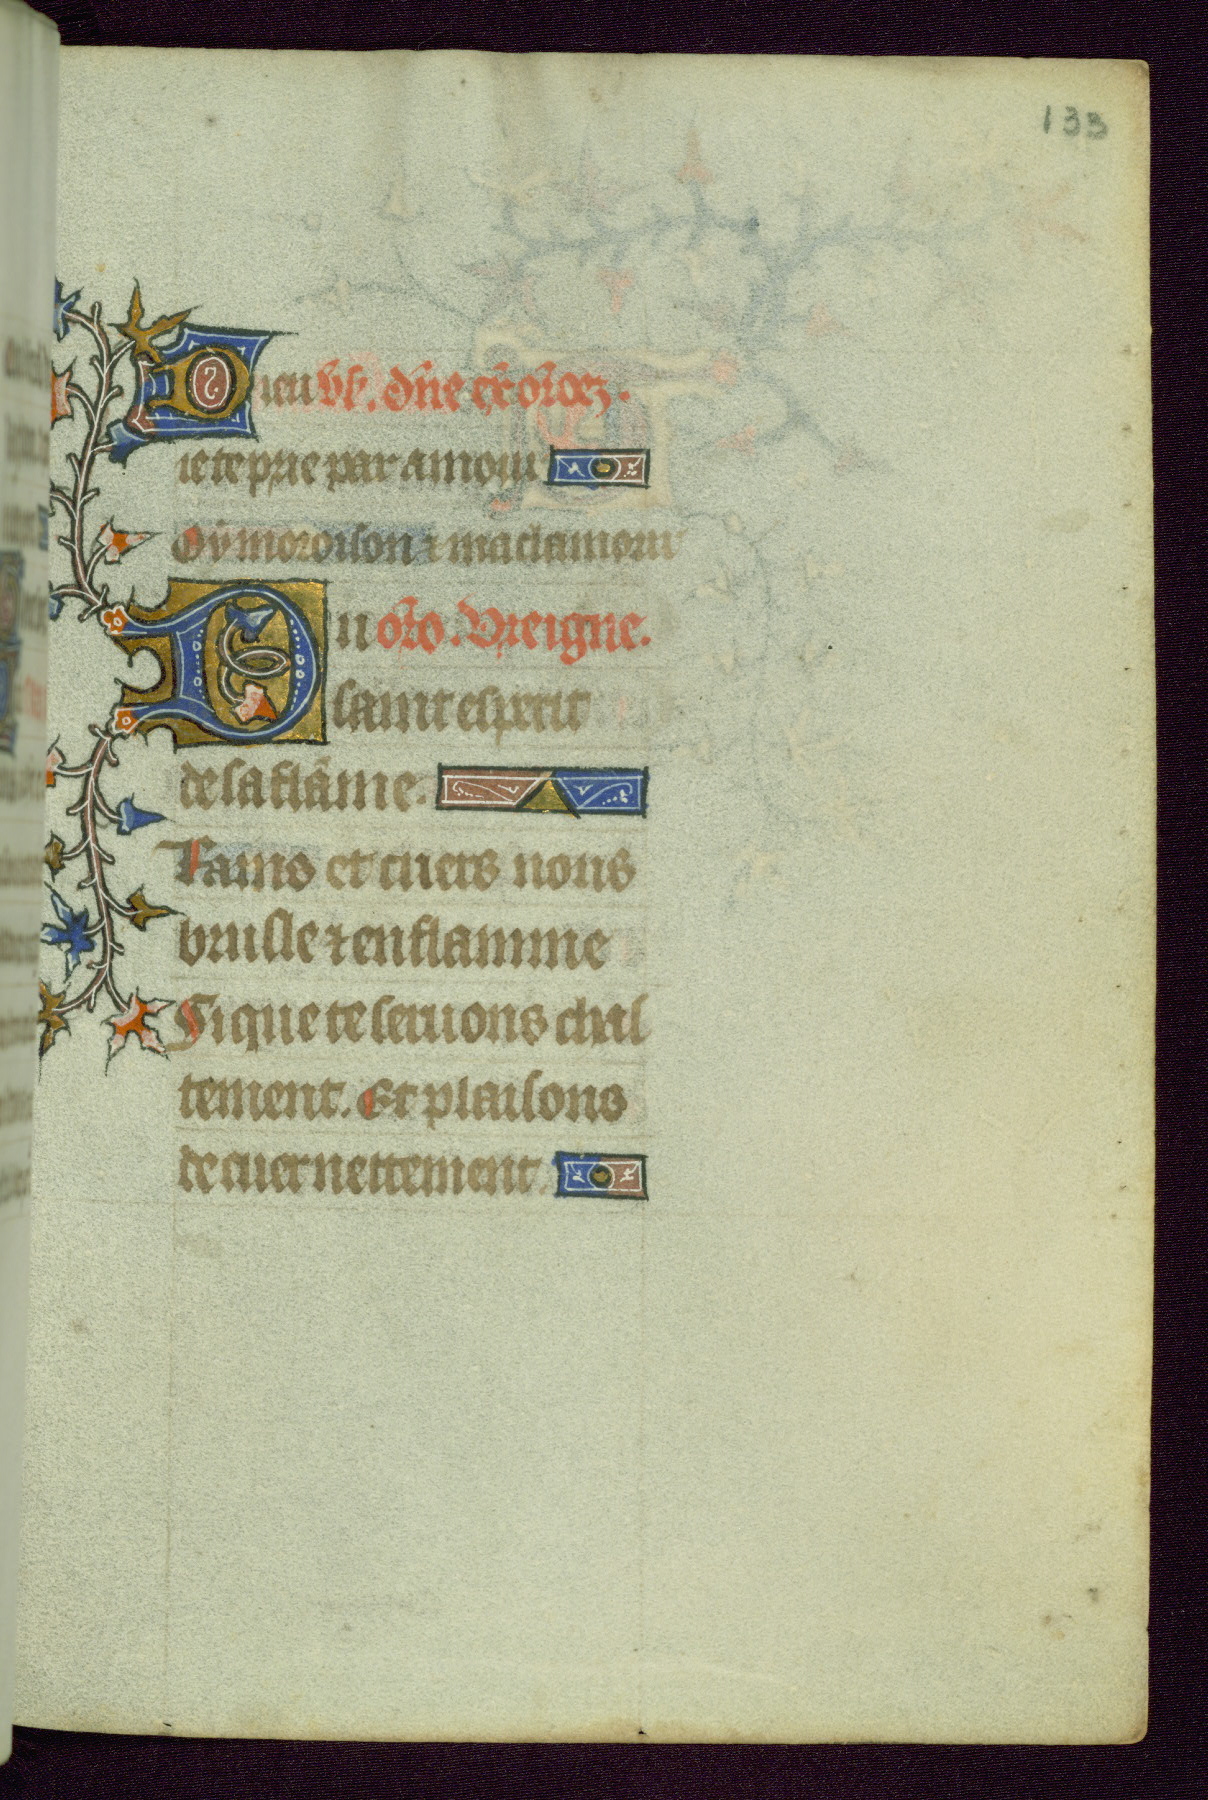 133
Dieu vs. dñe ex orōez.
ie te prie par amour
Oy m oroison ⁊ ma clamour
Du orō. Vreigne.
saint esperit
de sa flāme.
Rains et cuers nous
brusle ⁊ enflamme
Si que te seruons chas
tement. Et plaisons
de cuer nettement